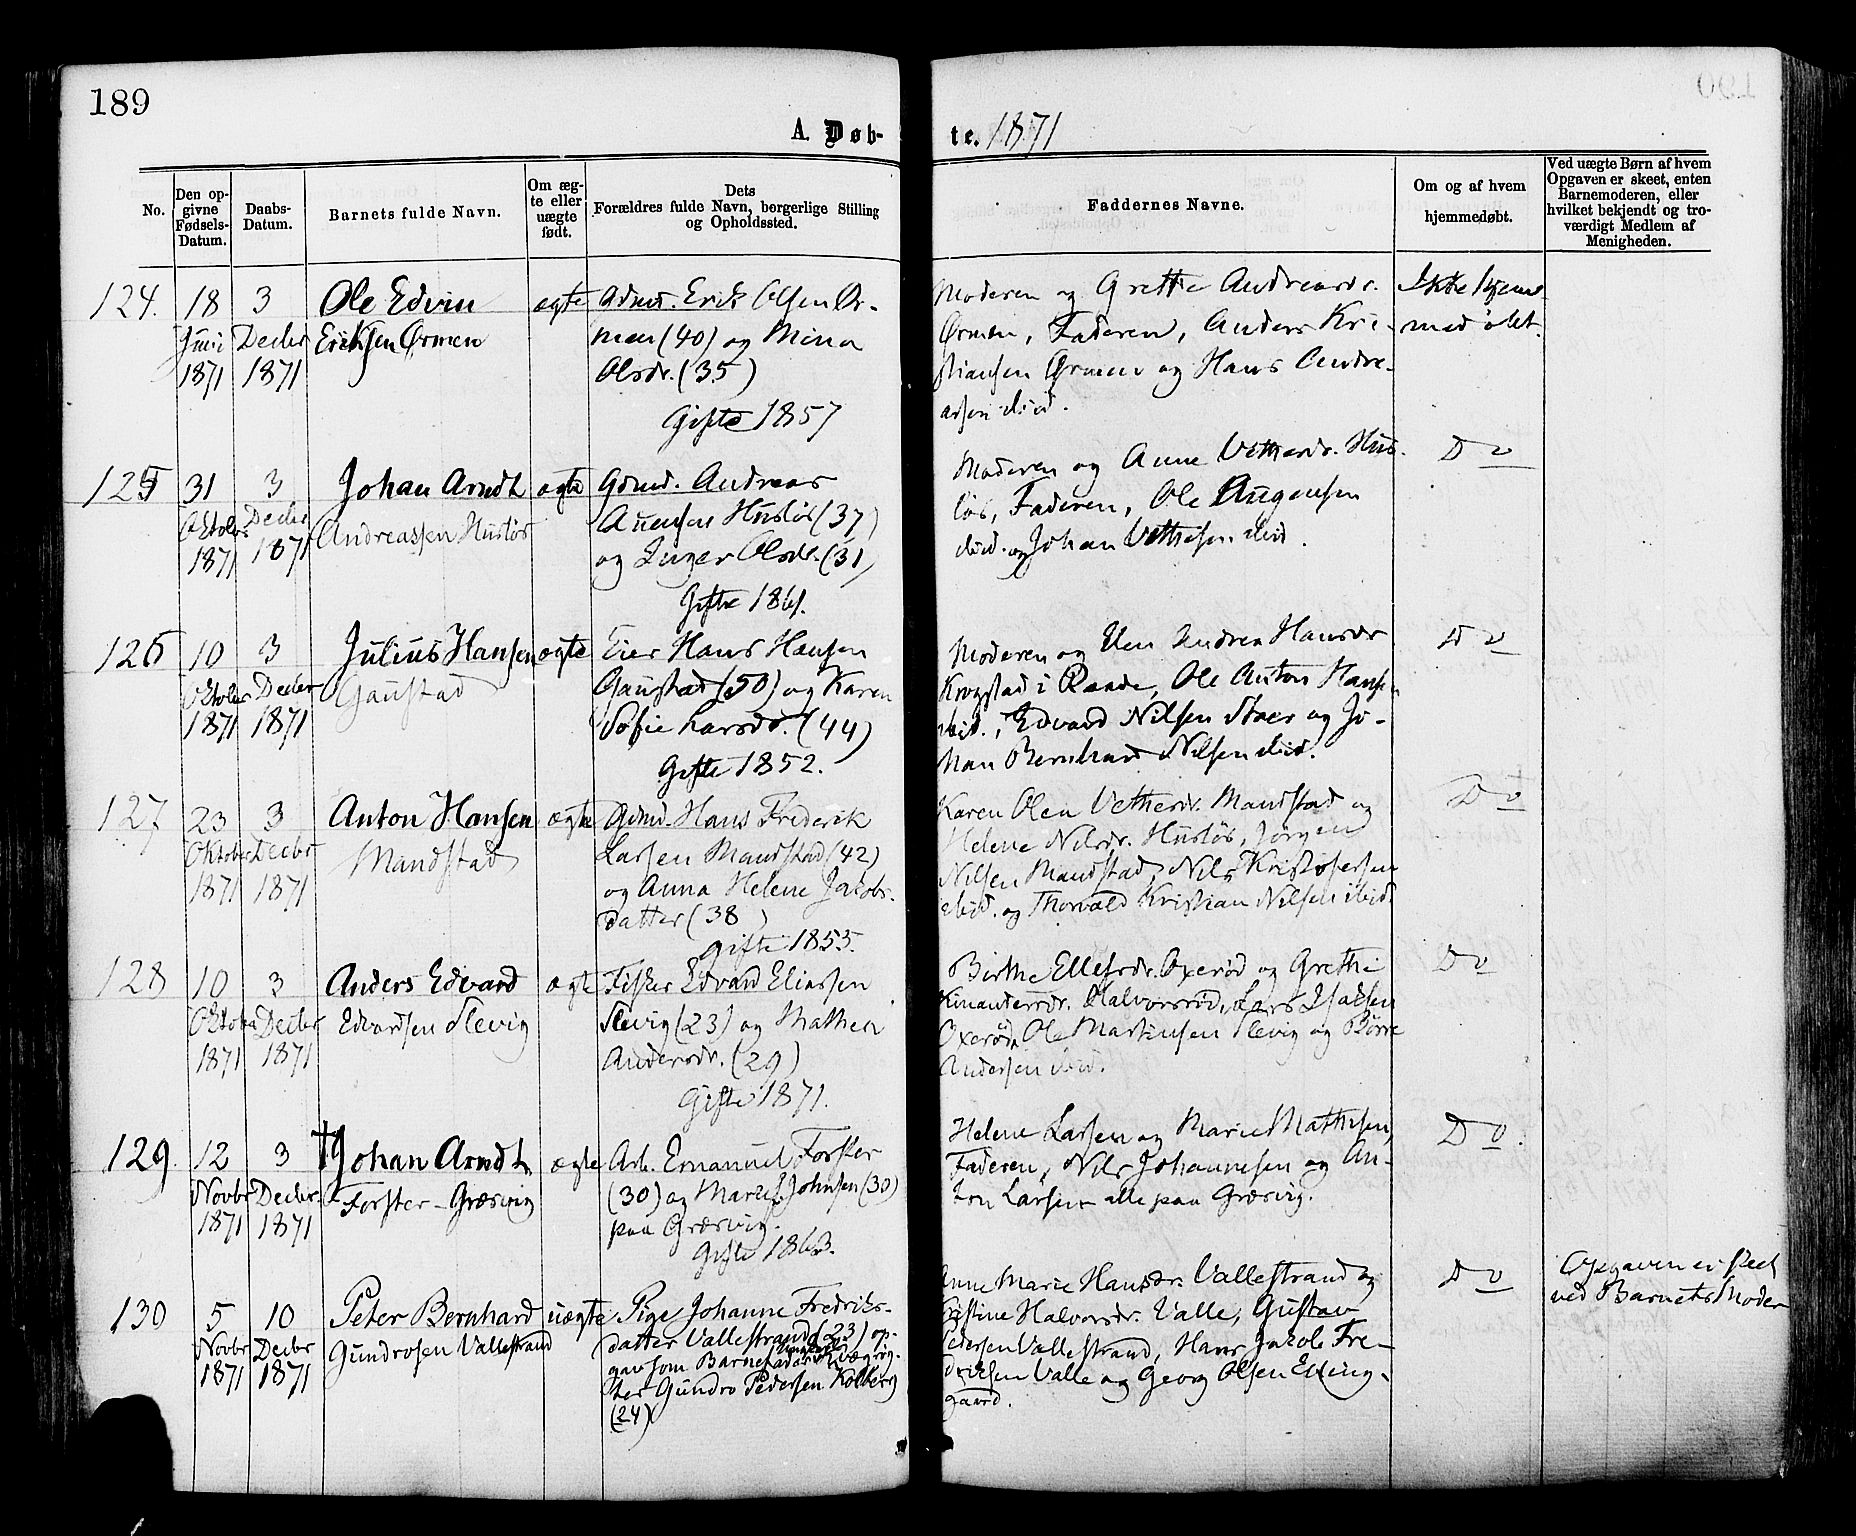 189
A. Døb-
te. 1871
No.
Den op-
givne
Fødsels-
Datum.
Daabs-
Datum.
Barnets fulde Navn.
Om æg-
te eller
uægte
født.
Dets
Forældres fulde Navn, borgerlige Stilling
og Opholdssted.
Faddernes Navne.
Om og af hvem
hjemmedøbt.
Ved uægte Børn af hvem
Opgaven er skeet, enten
Barnemoderen, eller
hvilket bekjendt og tro-
værdigt Medlem af
Menigheden.
124.
18
Juni
1871
3
Decbr
1871
Ole Edvin
Eriksen Ørmen
ægte
Gdmd. Erik Olsen Ør-
men (40) og Mina
Olsdr. (35)
Gifte 1857
Moderen og Grethe Andreasdr.
Ørmen, Faderen, Anders Kri-
stiansen Ørmen og Hans Andre-
asen ibid.
Ikke hjem-
medøbt.
125
31
Oktober
1871
3
Decbr
1871
Johan Arndt
Andreassen Husløs
ægte
Gdmd. Andreas
Auensen Husløs (37)
og Inger Olsdr. (31)
Gifte 1861.
Moderen og Anne Vethesdr. Hus-
løs, Faderen, Ole Augensen
ibid. og Johan Vethesen ibid.
Do
126
10
Oktober
1871
3
Decbr
1871
Julius Hansen
Gaustad
ægte
Eier Hans Hansen
Gaustad (50) og Karen
Sofie Larsdr. (44)
Gifte 1852.
Moderen og Elen Andrea Hansdr
Krogstad i Raade, Ole Anton Hansen
ibid., Edvard Nilsen Stoer og Jo-
han Bernhard Nilsen ibid.
Do
127
23
Oktober
1871
3
Decbr
1871
Anton Hansen
Mandstad
ægte
Gdmd. Hans Frederik
Larsen Mandstad (42)
og Anna Helene Jakobs-
datter (38)
gifte 1853.
Karen Olea Vethesdr. Mandstad og
Helene Nilsdr. Husløs, Jørgen
Nilsen Mandstad, Nils Kristofersen
ibid. og Thorvald Kristian Nilsen ibid.
Do
128
10
Oktober
1871
3
Decbr
1871
Anders Edvard
Edvardsen Slevig
ægte
Fisker Edvard Eliassen
Slevig (23) og Mathea
Andersdr. (29)
Gifte 1871.
Birthe Ellefsdr. Oxerød og Grethe
Halvorsrød, Lars Isaksen
Oxerød, Ole Martinsen Slevig og Børre
Andersen ibid.
Do
129.
12
Novbr
1871
3
Decbr.
1871
† Johan Arndt
Forster - Græsvig
ægte
Arb. Emanuel Forster
(30) og Marie Johnsen (30)
paa Græsvig.
Gifte 1863.
Helene Larsen og Marie Mathisen,
Faderen, Nils Johannesen og An-
ton Larsen alle paa Græsvig.
Do.
130
5
Novbr
1871
10
Decbr
1871
Peter Bernhard
Gundrosen Vallestrand
uægte
Pige Johanne Fredriks-
datter Vallestrand (23) op-
gav som Barnefader
Gundro Pedersen Kolberg
(24)
Anne Marie Hansdr. Vallestrand og
Kristine Halvorsdr. Valle, Gustav
Pedersen Vallestrand, Hans Jakob Fre-
driksen Valle og Georg Olsen Elling-
gaard.
Do
Opgaven er skeet
ved Barnets Moder